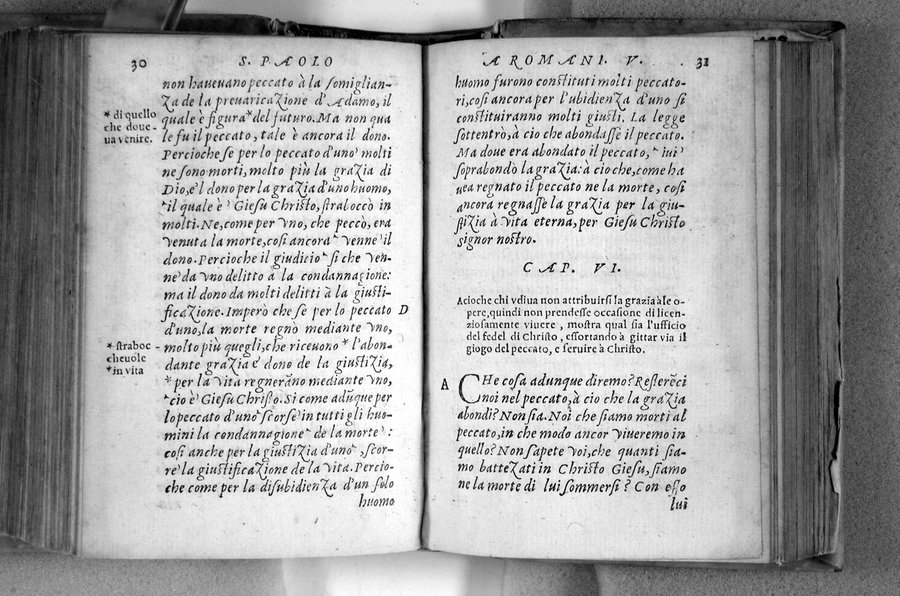 30 S. PAOLO
non haueuano peccato à la somiglian-
za de la preuaricazione d'Adamo, il
* di quello
che doue-
ua venire.
quale è figura* del futuro. Ma non qua
le fu il peccato, tale è ancora il dono.
Percioche se per lo peccato d'uno molti
ne sono morti, molto più la grazia di
Dio, e'l dono per la grazia d'uno huomo,
il quale è Giesu Christo, straboccò in
molti. Ne, come per vno, che peccò, era
venuta la morte, così ancora venne il
dono. Percioche il giudicio si che ven-
ne da vno delitto à la condannagione:
ma il dono da molti delitti à la giusti-
ficazione. Imperò che se per lo peccato D
d'uno, la morte regnò mediante vno,
* straboc-
cheuole
* in vita
molto più quegli, che riceuono * l'abon-
dante grazia e dono de la giustizia,
* per la vita regnerãno mediante vno,
ciò è Giesu Christo. Si come adũque per
lo peccato d'uno scorse in tutti gli huo-
mini la condannagione de la morte:
così anche per la giustizia d'uno, scor-
re la giustificazione de la vita. Percio-
che come per la disubidienza d'un solo
huomo
A ROMANI. V. 31
huomo furono constituti molti peccato-
ri, così ancora per l'ubidienza d'uno si
constituiranno molti giusti. La legge
sottentrò, à cio che abondasse il peccato.
Ma doue era abondato il peccato, iui
soprabondò la grazia: à cio che, come ha
uea regnato il peccato ne la morte, così
ancora regnasse la grazia per la giu-
stizia à vita eterna, per Giesu Christo
signor nostro.
CAP. VI.
Acioche chi vdiua non attribuirsi la grazia à le o-
pere, quindi non prendesse occasione di licen-
ziosamente viuere, mostra qual sia l'ufficio
del fedel di Christo, essortando à gittar via il
giogo del peccato, e seruire à Christo.
A CHe cosa adunque diremo? Resterẽci
noi nel peccato, à cio che la grazia
abondi? Non sia. Noi che siamo morti al
peccato, in che modo ancor viueremo in
quello? Non sapete voi, che quanti sia-
mo battezati in Christo Giesu, siamo
ne la morte di lui sommersi? Con esso
lui